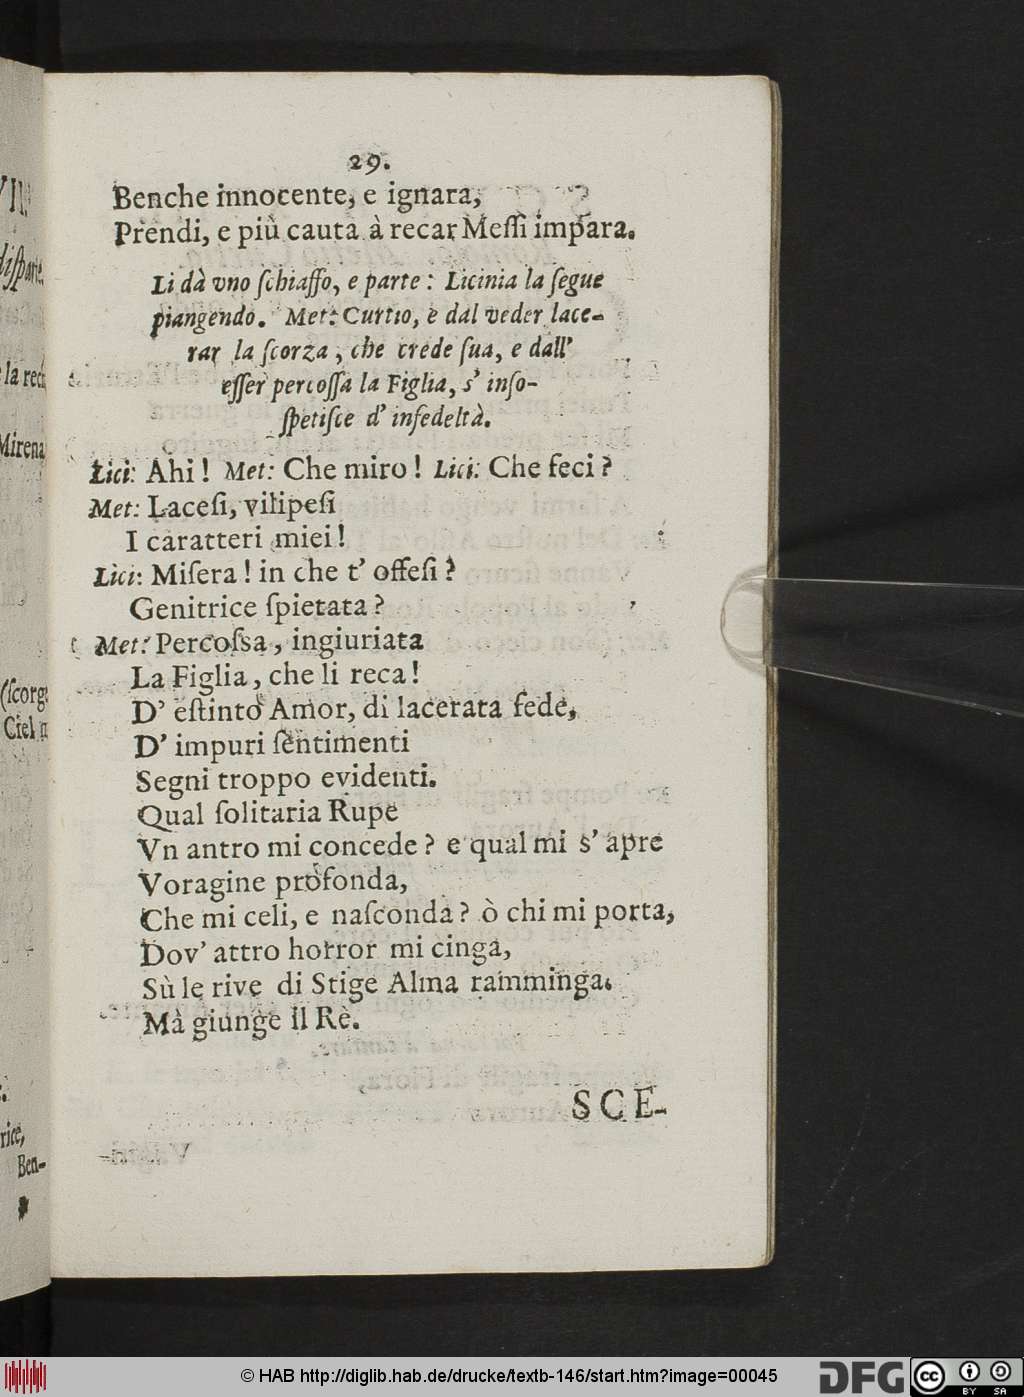 29.
Benche innocente, e ignara,
Prendi, e più cauta à recar Meſſi impara.
Li dà vno ſchiaffo, e parte: Licinia la ſegue
piangendo. Met: Curtio, e dal veder lace-
rar la ſcorza, che crede ſua, e dall'
eſſer percoſſa la Figlia, s' inſo-
ſpetiſce d' infedeltà.
Lici: Ahi! Met: Che miro! Lici: Che feci?
Met: Laceſi, vilipeſi
I caratteri miei!
Lici: Miſera! in che t' offeſi?
Genitrice ſpietata?
Met: Percoſsa, ingiuriata
La Figlia, che li reca!
D' eſtinto Amor, di lacerata fede,
D' impuri ſentimenti
Segni troppo evidenti.
Qual ſolitaria Rupe
Vn antro mi concede? e qual mi s' apre
Voragine profonda,
Che mi celi, e naſconda? ò chi mi porta,
Dov' attro horror mi cinga,
Sù le rive di Stige Alma ramminga.
Mà giunge il Rè.
SCE-
VII.
diſparte.
(ſcorg
Ciel
Mirena
la rech
rice,
Ben-
© HAB http://diglib.hab.de/drucke/textb-146/start.htm?image=00045
DFG
cc
BY SA